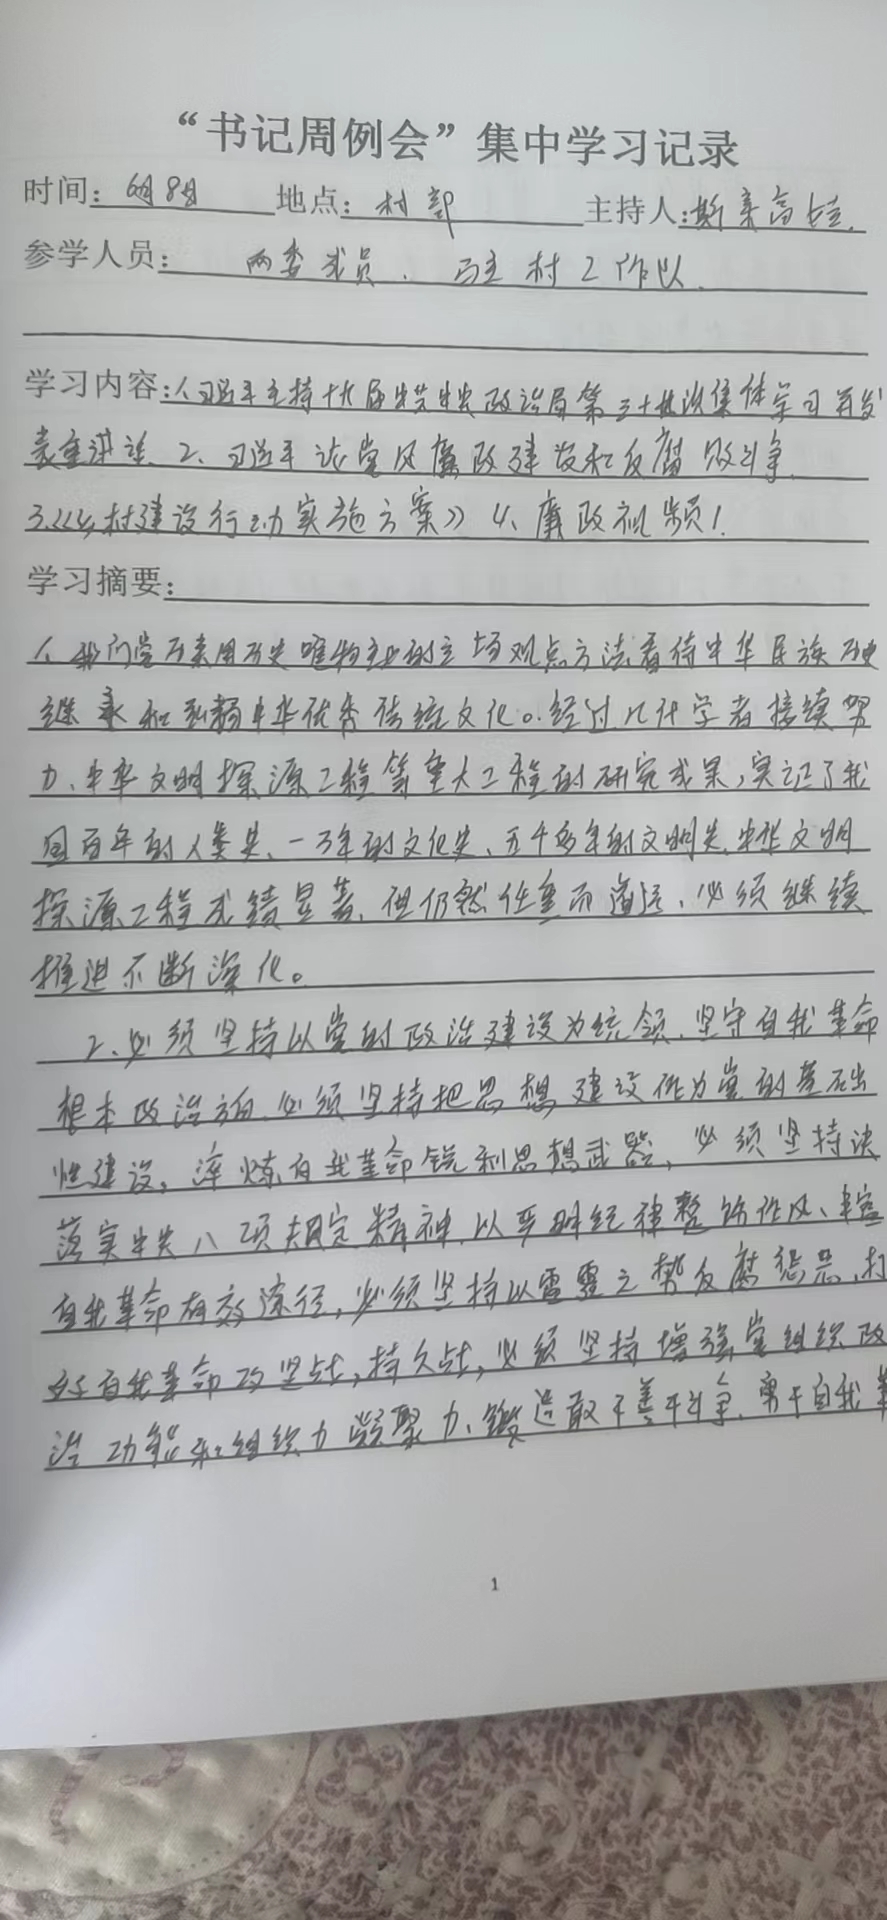 “书记周例会”集中学习记录
时间：6月8日 地点：村部 主持人：斯亲高娃.
参学人员： 两委成员、驻村工作队.
学习内容：1.习近平主持十九届中共中央政治局第三十九次集体学习并发
表重讲话、2、习近平论党风廉政建设和反腐败斗争
3.《乡村建设行动实施方案》4、廉政视频1.
学习摘要：
1、我们党历来用历史唯物主义的立场观点方法看待中华民族历史
继承和弘扬中华优秀传统文化。经过几代学者接续努
力、中华文明探源工程等重大工程的研究成果,实证了我
国百年的人类史、一万年的文化史、五千多年的文明史.中华文明
探源工程成绩显著、但仍然任重而道远、必须继续
推进不断深化。
2、必须坚持以党的政治建设为统领、坚守自我革命
根本政治方向.必须坚持把思想建设作为党的基础
性建设,淬炼自我革命锐利思想武器,必须坚持决
落实中央八项规定精神.以严明纪律整饬作风、丰富
自我革命有效途径,必须坚持以雷霆之势反腐惩恶,打
好自我革命攻坚战,持久战,必须坚持增强党组织政
治功能和组织力凝聚力、锻造敢于善于斗争、勇于自我革
1